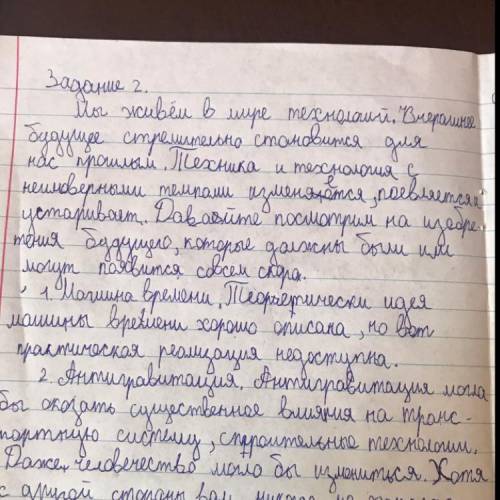 Задание 2.
Мы живём в мире технологий. Вчерашнее
будущее стремительно становится для
нас прошлым. Техника и технология с
неимоверными темпами изменяется, поевляется и
устаривает. Давайте посмотрим на изобре-
тения будущего, которые должны были или
могут появится совсем скора.
1. Машина времени. Теоретически идея
машины времени хорошо описана, но вот
практическая реализация недоступна.
2. Антигравитация. Антигравитация могла
бы оказать существенное влияния на транс-
портную систему, строительные технологии.
Даже человечество могла бы измениться. Хотя
с другой стороны вам